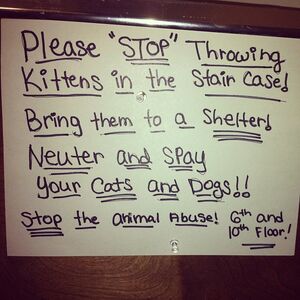 Please "STOP" Throwing
Kittens in the Stair Case!
Bring them to a Shelter!
Neuter and Spay
Your Cats and Dogs!!
Stop the animal Abuse! 6th and
10th Floor!